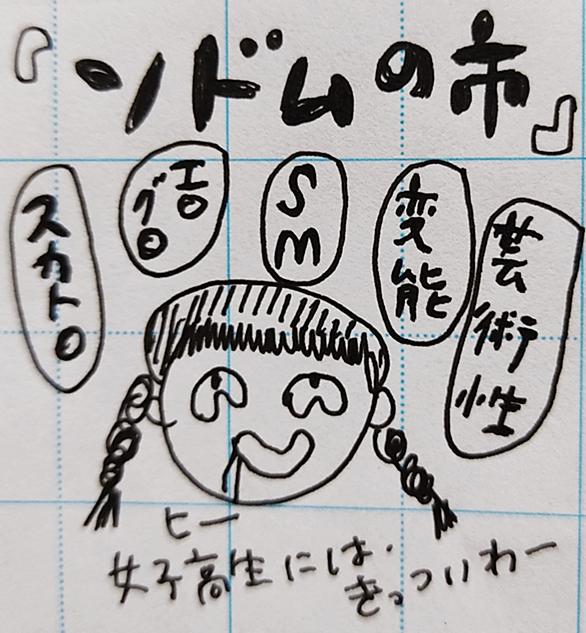 『ソドムの市』
スカト○
エ○
グ○
SM
変能
芸術性
ヒー
女子高生には、
きっついわー